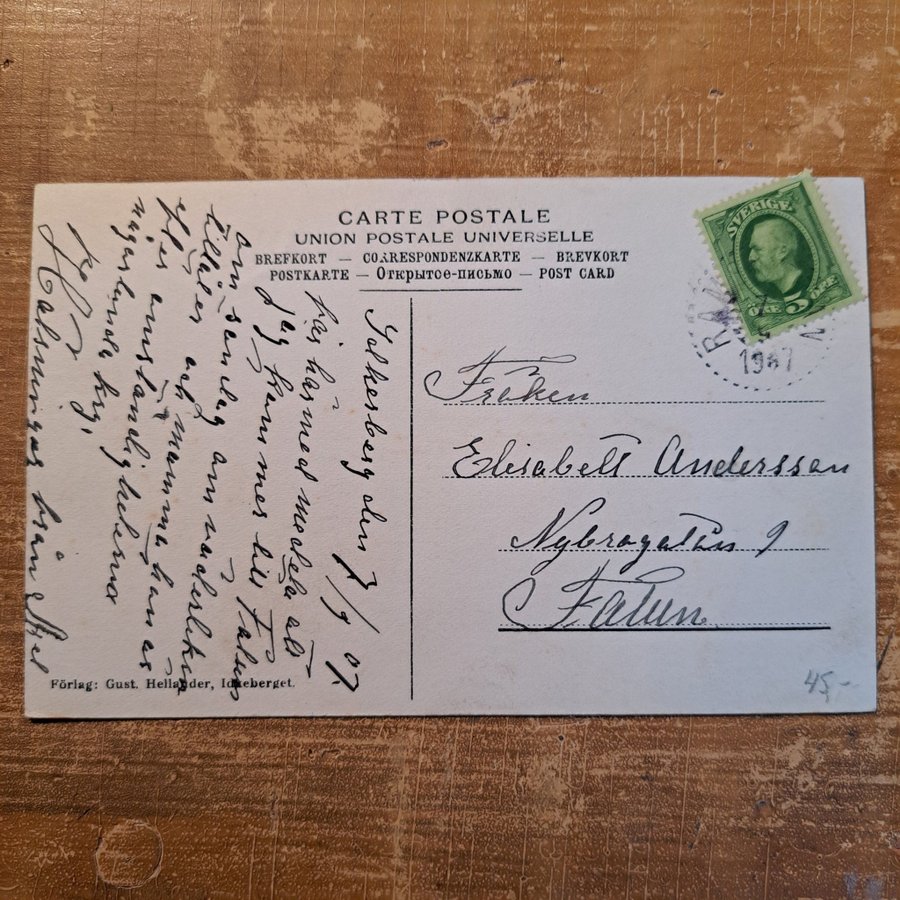 CARTE POSTALE
UNION POSTALE UNIVERSELLE
BREFKORT — CORRESPONDENZKARTE — BREVKORT
POSTKARTE — Открытое-письмо — POST CARD
SVERIGE
5
ÖRE
1907
Fröken
Elisabett Andersson
Nybrogatan 9
Falun
den 7/9 07.
får härmed meddela att
jag kommer till Falun
om söndag om väderleken
tillåter och mamma kan
efter omständigheterna
någorlunda kry,
Hälsningar från Axel
Förlag: Gust. Hellander, Idkeberget.
45,-